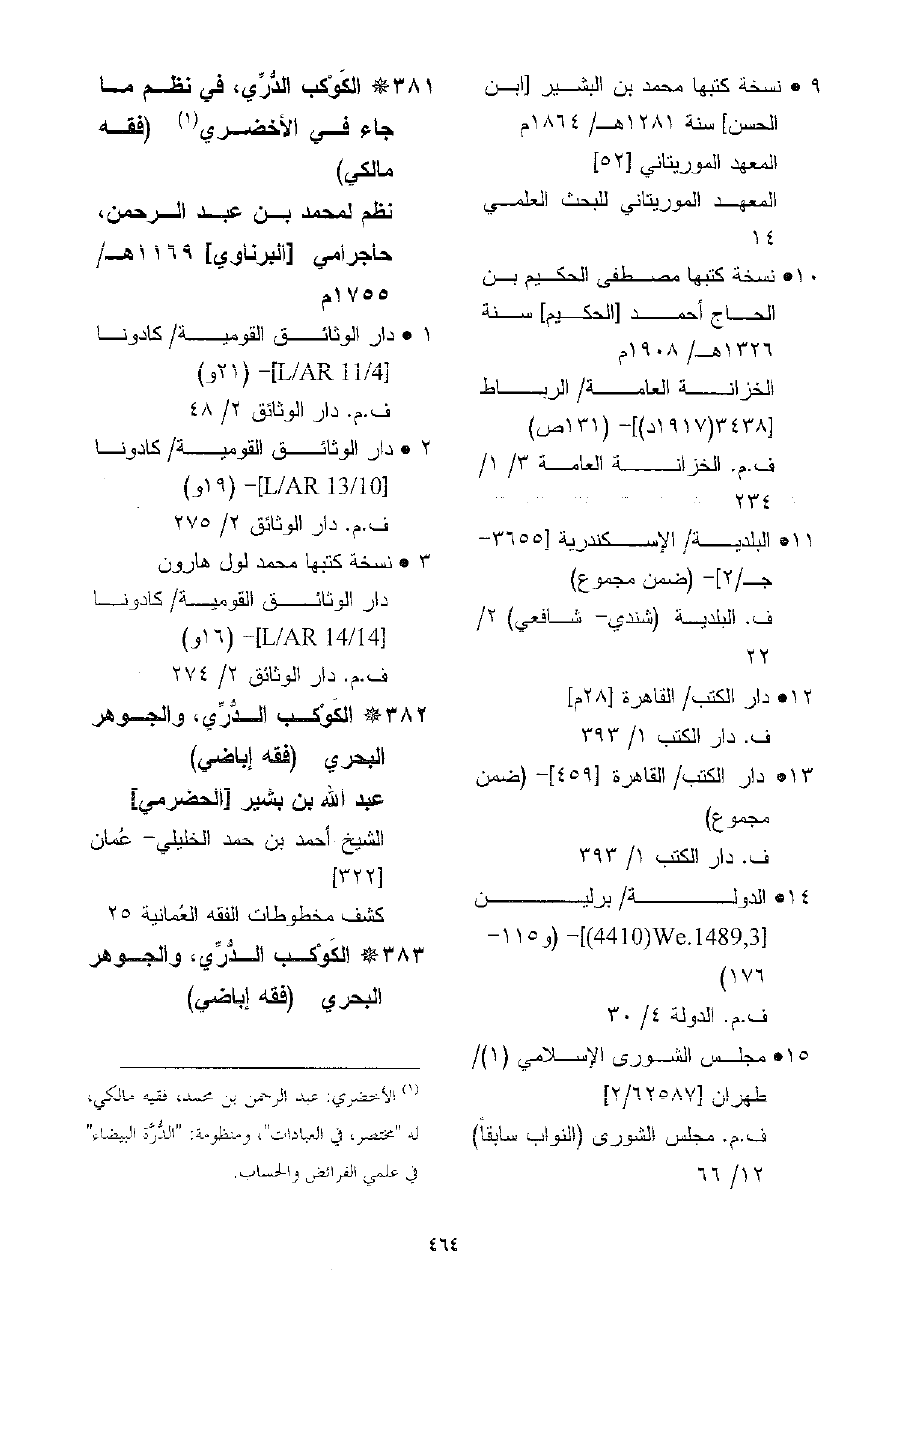 ٩ • نسخة كتبها محمد بن البشير [ابن
الحسن] سنة ١٢٨١هـ/ ١٨٦٤م
المعهد الموريتاني [٥٢]
المعهد الموريتاني للبحث العلمي
١٤
١٠• نسخة كتبها مصطفى الحكيم بن
الحاج أحمد [الحكيم] سنة
١٣٢٦هـ/ ١٩٠٨م
الخزانة العامة/ الرباط
[٣٤٣٨(١٩١٧د)]- (١٣١ص)
ف.م. الخزانة العامة ٣/ ١/
٢٣٤
١١• البلدية/ الإسكندرية [٣٦٥٥-
جـ/٢]- (ضمن مجموع)
ف. البلدية (شندي- شافعي) ٢/
٢٢
١٢• دار الكتب/ القاهرة [٢٨م]
ف. دار الكتب ١/ ٣٩٣
١٣• دار الكتب/ القاهرة [٤٥٩]- (ضمن
مجموع)
ف. دار الكتب ١/ ٣٩٣
١٤• الدولة/ برلين
[We.1489,3(4410)]- (و١١٥-
١٧٦)
ف.م. الدولة ٤/ ٣٠
١٥• مجلس الشورى الإسلامي (١)/
طهران [٢/٦٢٥٨٧]
ف.م. مجلس الشورى (النواب سابقاً)
١٢/ ٦٦
٣٨١* الكَوْكب الدُّرِّي، في نظم ما
جاء في الأخضري(١) (فقه
مالكي)
نظم لمحمد بن عبد الرحمن،
حاجرامي [البرناوي] ١١٦٩هـ/
١٧٥٥م
١ • دار الوثائق القومية/ كادونا
[L/AR 11/4]- (٢١و)
ف.م. دار الوثائق ٢/ ٤٨
٢ • دار الوثائق القومية/ كادونا
[L/AR 13/10]- (١٩و)
ف.م. دار الوثائق ٢/ ٢٧٥
٣ • نسخة كتبها محمد لول هارون
دار الوثائق القومية/ كادونا
[L/AR 14/14]- (١٦و)
ف.م. دار الوثائق ٢/ ٢٧٤
٣٨٢* الكَوْكب الدُّرِّي، والجوهر
البحري (فقه إباضي)
عبد الله بن بشير [الحضرمي]
الشيخ أحمد بن حمد الخليلي- عُمان
[٣٢٢]
كشف مخطوطات الفقه العُمانية ٢٥
٣٨٣* الكَوْكب الدُّرِّي، والجوهر
البحري (فقه إباضي)
(١) الأخضري: عبد الرحمن بن محمد، فقيه مالكي،
له "مختصر، في العبادات"، ومنظومة: "الدُّرَّة البيضاء"
في علمي الفرائض والحساب.
٤٦٤